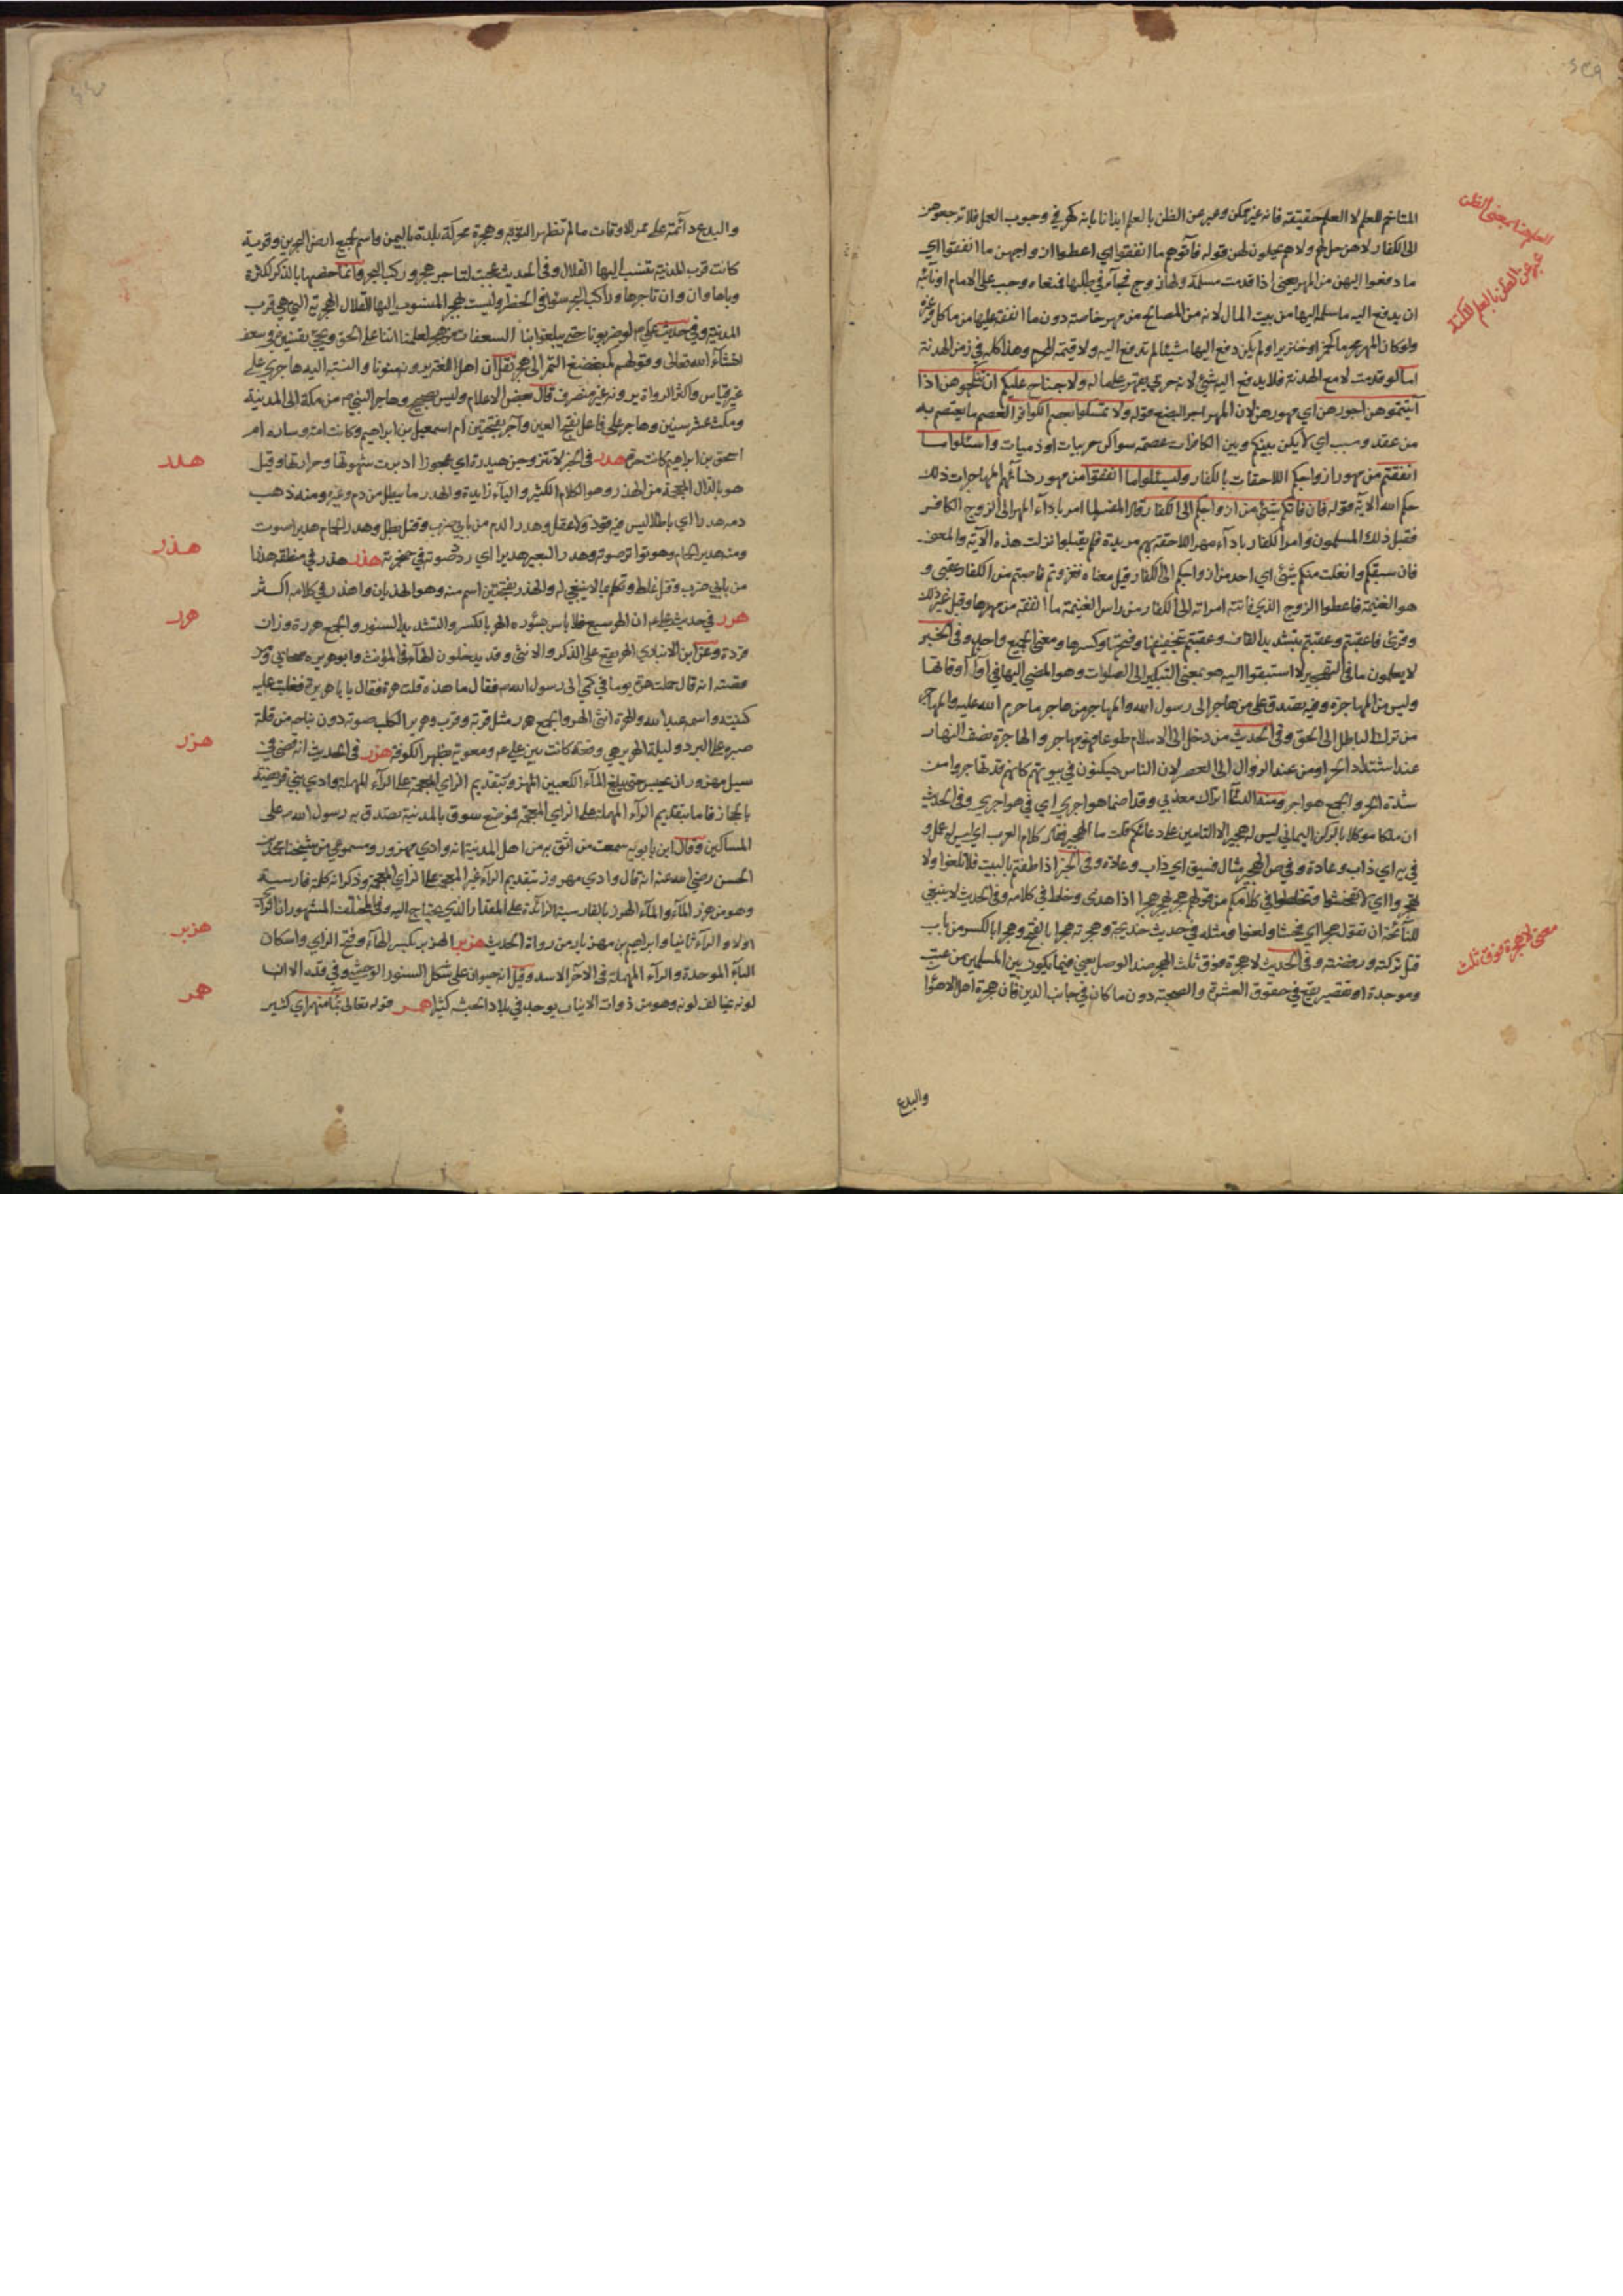 المتاخم للعلم لا العلم حقيقته فانه غير ممكن وعبر عن الظن بالعلم ايذانا بانه كهو في وجوب العمل فلا ترجعوهن
الى الكفار لا هن حل لهم ولا هم يحلون لهن قوله فآتوهم ما انفقوا اي اعطوا ازواجهن ما انفقوا اي
ما دفعوا اليهن من المهر يعني اذا قدمت مسلمة ولها زوج فجآء في طلبها فمنعناه وجب على الامام او نائبه
ان يدفع اليه ما سلمه اليها من بيت المال لانه من المصالح من مهر خاصة دون ما انفقه عليها من ماكل وغيره
ولو كان المهر محرما كخمر او خنزير او لم يكن دفع اليها شيئا لم تدفع اليه ولا قيمة المحرم وهذا كله في زمن الهدنة
اما لو قدمت لا مع الهدنة فلا يدفع اليه شئ لانه حربي يقهر على ماله ولا جناح عليكم ان تنكحوهن اذا
آتيتموهن اجورهن اي مهورهن لان المهر اجر البضع قوله ولا تمسكوا بعصم الكوافر العصم ما يعتصم به
من عقد وسبب اي لا يكن بينكم وبين الكافرات عصمة سواكن حربيات او ذميات واسئلوا ما
انفقتم من مهور ازواجكم اللاحقات بالكفار وليسئلوا ما انفقوا من مهور نسائهم المهاجرات ذلك
حكم الله الآية قوله فان فاتكم شئ من ازواجكم الى الكفار قال المفسر لما امر بادآء المهر الى الزوج الكافر
فقبل ذلك المسلمون وامر الكفار بادآء مهر اللاحقة بهم مرتدة فلم يقبلوا نزلت هذه الآية والمعنى
فان سبقكم وانفلت منكم شئ اي احد من ازواجكم الى الكفار قيل معناه فغزوتم فاصبتم من الكفار عقبى و
هو الغنيمة فاعطوا الزوج الذي فاتته امراته الى الكفار من راس الغنيمة ما انفقه من مهرها وقيل غير ذلك
وقرئ فاعقبتم وعقبتم بتشديد القاف وعقبتم بتخفيفها وفتحها وكسرها ومعنى الجميع واحد وفي الخبر
لو يعلمون ما في التهجير لاستبقوا اليه هو بمعنى التبكير الى الصلوات وهو المضي اليها في اول اوقاتها
وليس من المهاجرة وفيه يصدق على من هاجر الى رسول الله والمهاجر من هاجر ما حرم الله عليه والمهاجر
من ترك الباطل الى الحق وفي الحديث من دخل الى الاسلام طوعا فهو مهاجر والهاجرة نصف النهار
عند اشتداد الحر او من عند الزوال الى العصر لان الناس يسكنون في بيوتهم كانهم قد تهاجروا من
شدة الحر والجمع هواجر ومنه الدعآء اتراك معذبي وقد اظمأت هواجري اي في هواجري وفي الحديث
ان ملكا موكلا بالركن اليماني ليس له هجير الا التامين على دعائكم قلت ما الهجير فقال كلام العرب اي ليس له عمل و
في ص الهجير مثال فسيق اي داب وعادة وفي الخبر اذا طفتم بالبيت فلا تلغوا ولا
تهجروا اي لا تفحشوا وتخلطوا في كلامكم من قولهم هجر يهجر هجرا اذا هذى وخلط في كلامه وفي الحديث لا ينبغي
للنآئحة ان تقول هجرا اي فحشا ولغوا ومثله في حديث خديجة وهجرته هجرا بالفتح وهجرا بالكسر من باب
قتل تركته ورفضته وفي الحديث لا هجرة فوق ثلث الهجر ضد الوصل يعني فيما يكون بين المسلمين من عتب
وموجدة او تقصير يقع في حقوق العشرة والصحبة دون ما كان في جانب الدين فان هجرة اهل الاهوآء
العلم هنا بمعنى الظن
عبر عن الظن بالعلم
معنى لا هجرة فوق ثلث
والبدع
والبدع دآئمة على ممر الاوقات ما لم تظهر التوبة وهجرة محركة بلدة باليمن واسم لجميع ارض البحرين وقرية
كانت قرب المدينة تنسب اليها القلال وفي الحديث عجبت لتاجر هجر وراكب البحر وانما خصها بالذكر لكثرة
وباها وان تاجرها وراكب البحر سوآء في الخطر وليست هجر المنسوب اليها القلال الهجرية التي هي قرب
المدينة وفي حديث علي لو ضربونا حتى يبلغوا بنا السعفات من هجر لعلمنا اننا على الحق ويجئ تفسيره في سعف
انشآء الله تعالى وقولهم كمبضع التمر الى هجر نقل ان اهل اللغة يريدونه منونا والنسبة اليه هاجري على
غير قياس واكثر الرواة يروونه غير منصرف قال بعض الاعلام وليس بصحيح وهاجر النبي من مكة الى المدينة
ومكث عشر سنين وهاجر على فاعل بفتح العين وآجر بفتحتين ام اسمعيل بن ابراهيم وكانت امة وساره ام
اسحق بن ابراهيم كانت حرة هدر في الخبر لا تتزوجن هيدرة اي عجوزا ادبرت شهوتها وحرارتها وقيل
هو بالذال المعجمة من الهذر وهو الكلام الكثير واليآء زايدة والهدر ما يبطل من دم وغيره ومنه ذهب
دمه هدرا اي باطلا ليس فيه قود ولا عقل وهدر الدم من بابي ضرب وقتل بطل وهدر الحمام هديرا صوت
ومنه هدير الحمام وهو تواتر صوته وهدر البعير هديرا اي ردد صوته في حنجرته هذر هذر في منطقه هذرا
من بابي ضرب وقتل خلط وتكلم بما لا ينبغي له والهذر بفتحتين اسم منه وهو الهذيان واهذر في كلامه اكثر
هرر في حديث علي ان الهر سبع فلا باس بسؤره الهر بالكسر والتشديد السنور والجمع هررة وزان
قردة وعن ابن الانباري الهر يقع على الذكر والانثى وقد يدخلون الهآء في المؤنث وابو هريره صحابي وقد
قصته انه قال حملت هرة يوما في كمي الى رسول الله فقال ما هذه قلت هرة فقال يا با هريرة فغلبت عليه
كنيته واسمه عبد الله والهرة انثى الهر والجمع هرر مثل قربة وقرب وهرير الكلب صوته دون نباحه من قلة
صبره على البرد وليلة الهرير هي وقعة كانت بين علي ومعوية بظهر الكوفة هزر في الحديث انه قضى في
سيل مهزور ان يحبس حتى يبلغ المآء الكعبين المهزور بتقديم الزاي المعجمة على الرآء المهملة وادي بني قريضة
بالحجاز فاما بتقديم الرآء المهملة على الزاي المعجمة فموضع سوق بالمدينة تصدق به رسول الله على
المساكين وقال ابن بابويه سمعت من اثق به من اهل المدينة انه وادي مهزور ومسموعي من شيخنا محمد بن
الحسن رضي الله عنه انه قال وادي مهروز بتقديم الرآء غير المعجمة على الزاي المعجمة وذكر انه كلمة فارسية
وهو من هرز المآء والمآء الهرز بالفارسية الزآئد على المقدار الذي يحتاج اليه
اولا والرآء ثانيا وابراهيم بن مهزيار من رواة الحديث هزبر الهزبر بكسر الهآء وفتح الزاي واسكان
البآء الموحدة والرآء المهملة في الآخر الاسد وقيل انه حيوان على شكل السنور الوحشي وفي قده الا ان
لونه يخالف لونه وهو من ذوات الانياب يوجد في بلاد الحبشة كثيرا همر قوله تعالى بمآء منهمر اي كثير
هدر
هذر
هرر
هزر
هزبر
همر